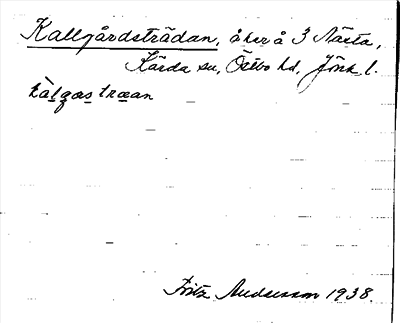 Kallgårdsträdan, åker å 3 Nästa,
Kärda sn, Östbo hd, Jönk. l.
Fritz Andersson 1938.